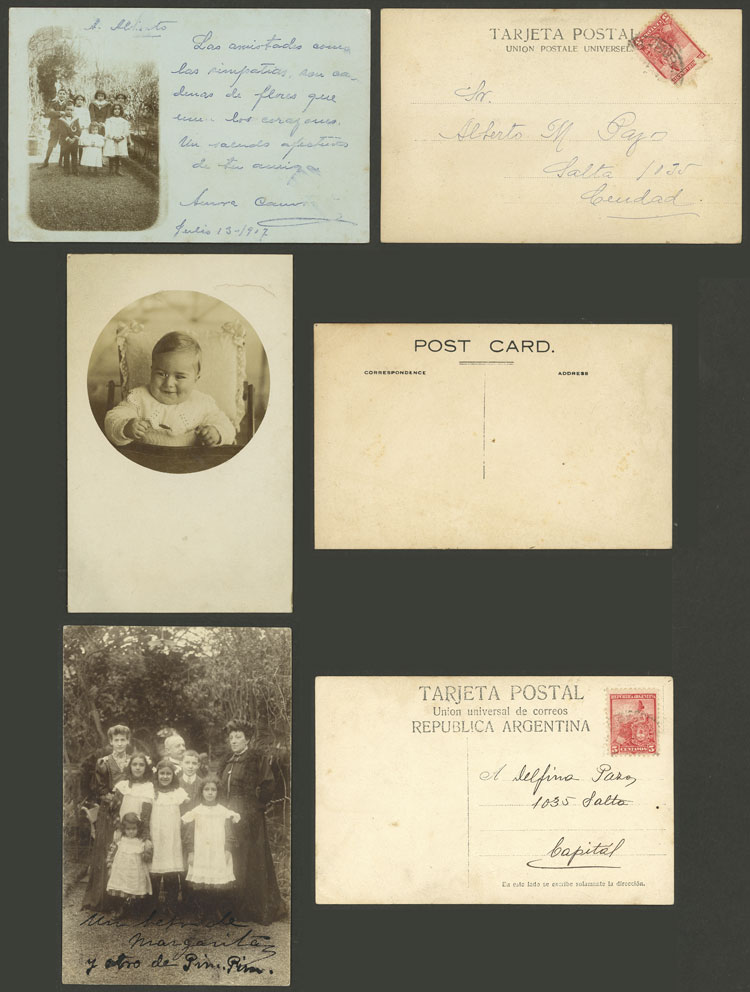 A. Alberto
Las amistades como
las simpatías, son ca-
denas de flores que
unen los corazones.
Un saludo afectuoso
de tu amiga
Julio 13-1907
TARJETA POSTAL
UNION POSTALE UNIVERSEL
Sr.
Alberto M. Pazos
Salta 1035
Ciudad.
POST CARD.
CORRESPONDENCE
ADDRESS
Margarita
y otro de Pim-Pim.
TARJETA POSTAL
Union universal de correos
REPUBLICA ARGENTINA
5 CENTAVOS 5
A Delfina Pazos
1035 Salta
Capital
En este lado se escribe solamente la dirección.